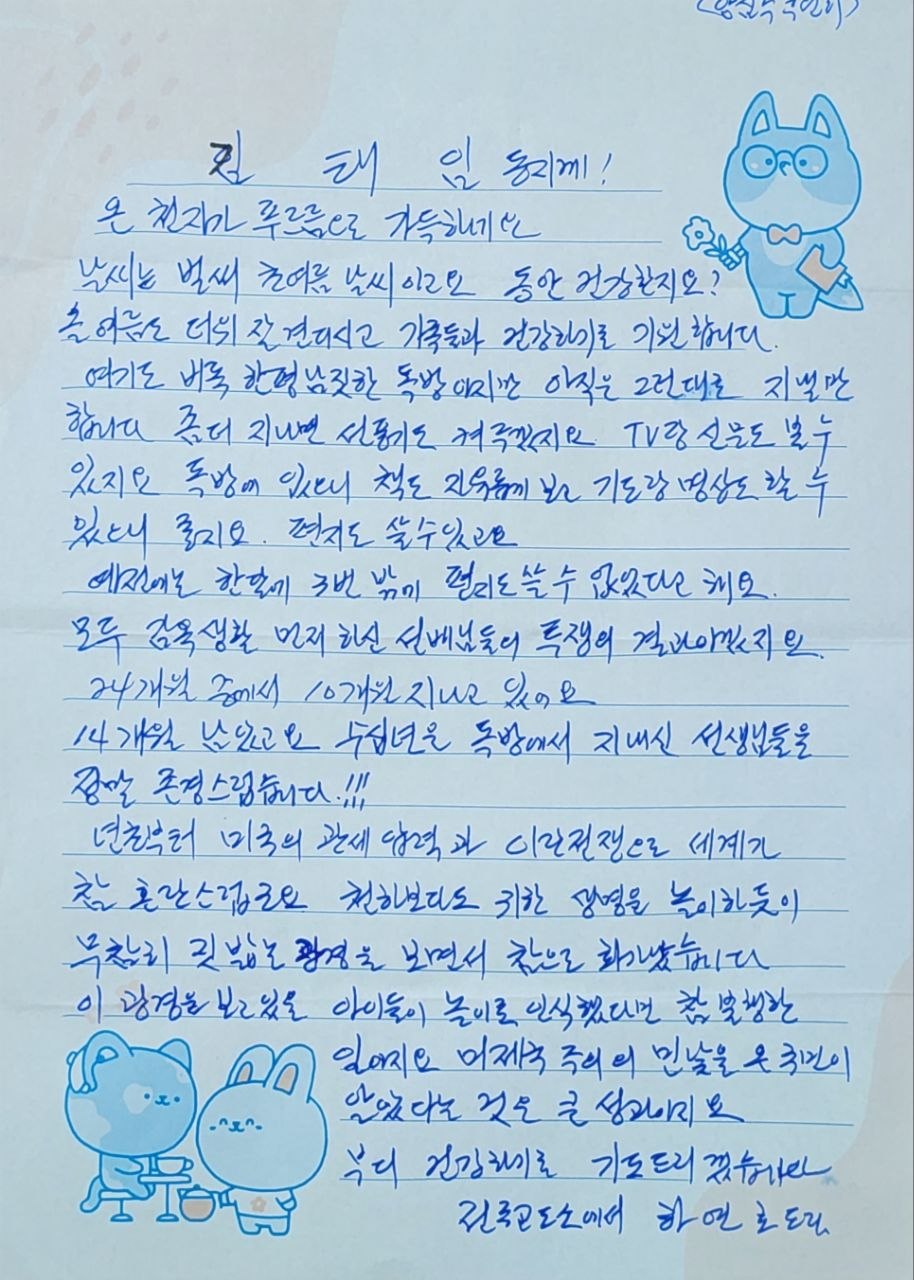 김 태 임 동지께!
온 천지가 푸르름으로 가득하네요
날씨는 벌써 초여름 날씨이고요 동안 건강한지요?
올 여름도 더위 잘 견디시고 가족들과 건강하기를 기원합니다.
여기도 비록 한평남짓한 독방이지만 아직은 그런대로 지낼만
합니다 좀더 지나면 선풍기도 켜주겠지요 TV랑 신문도 볼 수
있지요 독방에 있으니 책도 자유롭게 보고 기도랑 명상도 할 수
있으니 좋지요. 편지도 쓸수있고요
예전에는 한달에 3번 밖에 편지도 쓸 수 없었다고 해요.
모두 감옥생활 먼저 하신 선배님들의 투쟁의 결과이겠지요.
24개월 중에서 10개월 지나고 있어요
14개월 남았고요 수십년을 독방에서 지내신 선생님들을
정말 존경스럽습니다.!!!
년초부터 미국의 관세압력과 이란전쟁으로 세계가
참 혼란스럽군요 천하보다도 귀한 생명을 놀이하듯이
무참히 짓밟는 광경을 보면서 참으로 화가났습니다
이 광경을 보고있을 아이들이 놀이로 인식했다면 참 불행한
일이지요 미제국주의의 민낯을 온 국민이
알았다는 것은 큰 성과이지요
부디 건강하기를 기도드리겠습니다
전주교도소에서 하연호 드림